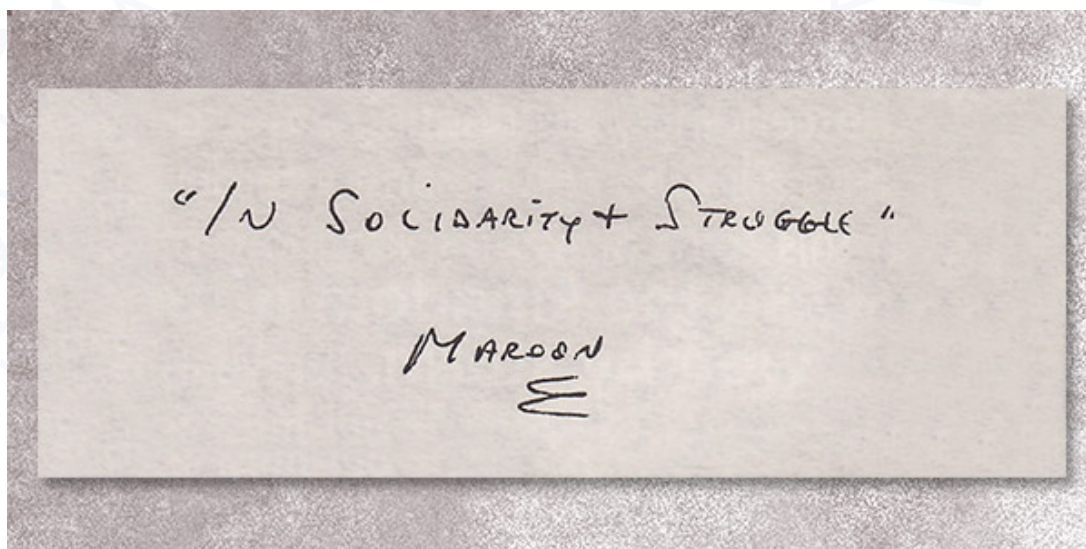 "IN SOLIDARITY + STRUGGLE"
MAROON